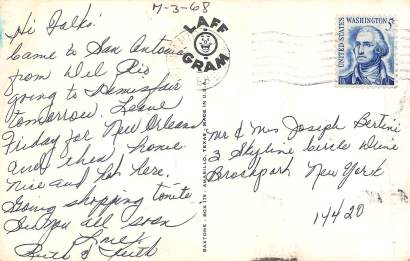 7-3-68
Hi Folks!
Came to San Antonio
from Del Rio
going to Hemisfair
tomorrow. Leave
Friday for New Orleans
and then home.
Nice and hot here.
Going shopping tonite.
See you all soon
Love,
Ruth & Keith
LAFF
GRAM
BAXTONE - BOX 175 - AMARILLO, TEXAS - MADE IN U.S.A.
UNITED STATES
WASHINGTON 5¢
Mr & Mrs Joseph Bertini
3 Skyline Circle Drive
Brockport New York
14420